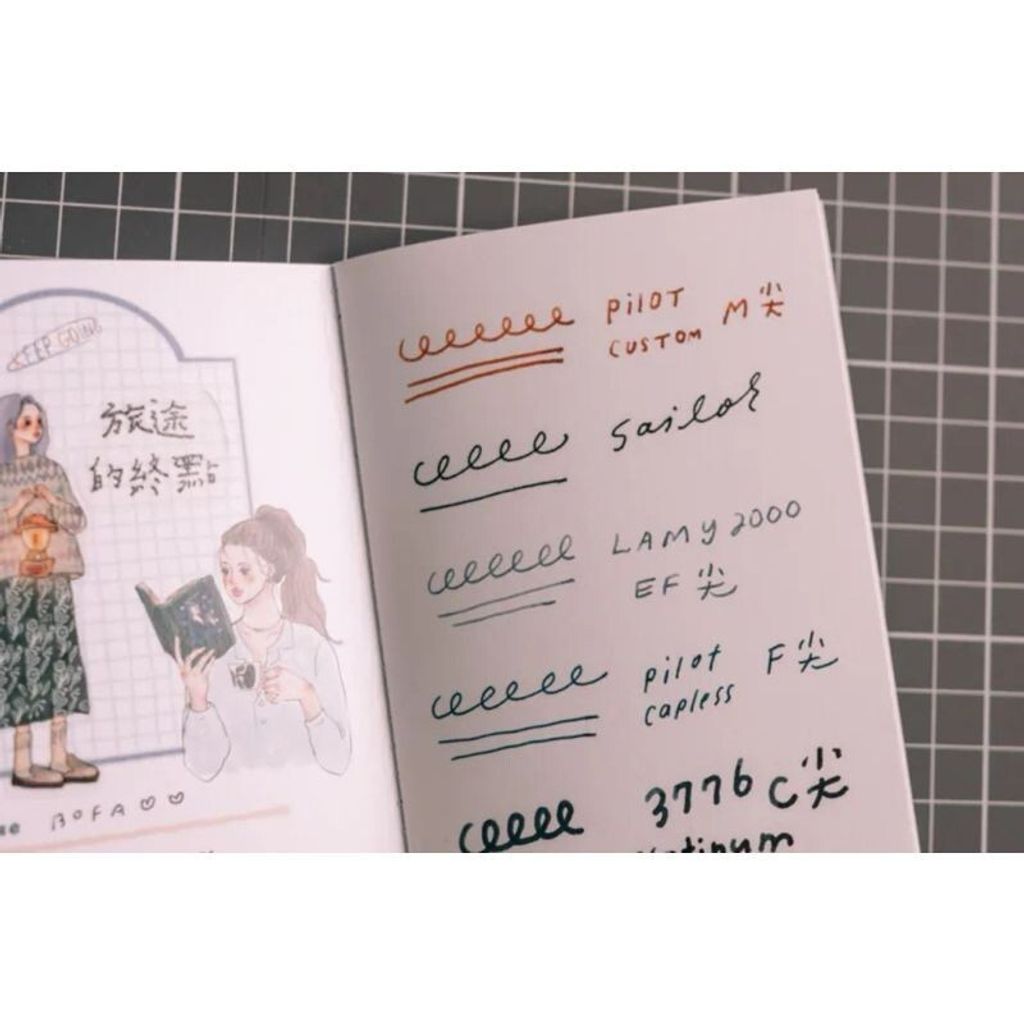 KEEP GOING
旅途
的終點
BOFA♡♡
PILOT M尖
CUSTOM
Sailor
LAMY 2000
EF尖
pilot F尖
capless
3776 C尖